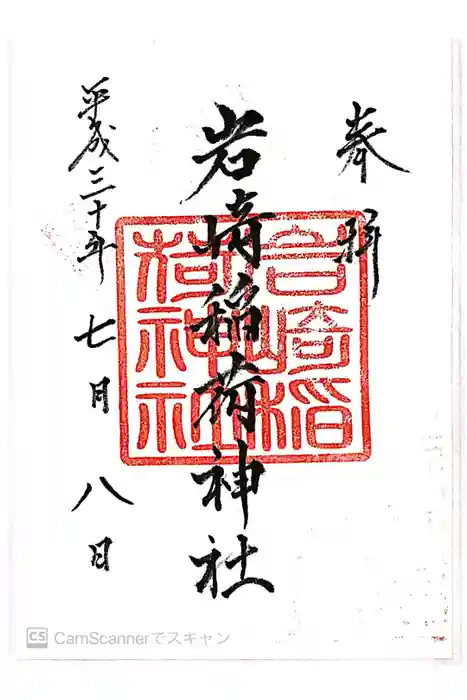 奉拝
岩崎稲荷神社
平成三十年七月八日
岩崎稲荷神社
CS CamScannerでスキャン